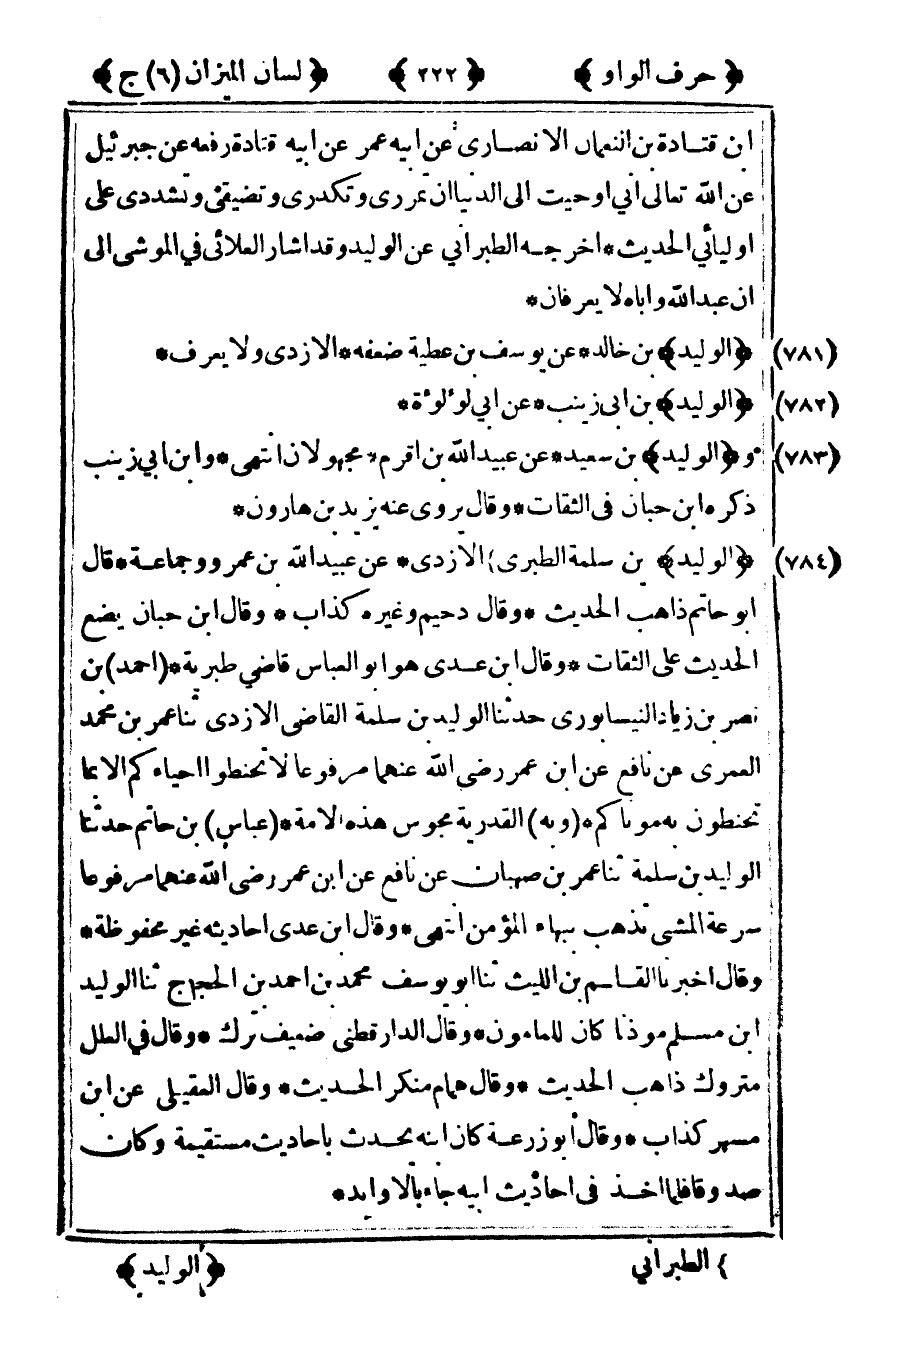 ﴿ حرف الواو ﴾ ﴿ ٢٢٢ ﴾ ﴿ لسان الميزان (٦) ج ﴾
ابن قتادة بن النعمان الانصارى عن ابيه عمر عن ابيه قتادة رفعه عن جبرئيل
عن الله تعالى انى اوحيت الى الدنيا ان تمررى وتكدرى وتضيقى وتشددى على
اوليائى الحديث * اخرجه الطبرانى عن الوليد وقد اشار العلائى فى الموشى الى
ان عبد الله واباه لا يعرفان *
(٧٨١) ﴿الوليد﴾ بن خالد * عن يوسف بن عطية ضعفه * الازدى ولا يعرف *
(٧٨٢) ﴿الوليد﴾ بن ابى زينب * عن ابى لولوة *
(٧٨٣) و ﴿الوليد﴾ بن سعيد * عن عبيد الله بن اقرم * مجهولان انتهى * وابن ابى زينب
ذكره ابن حبان فى الثقات * وقال يروى عنه يزيد بن هارون *
(٧٨٤) ﴿الوليد﴾ بن سلمة الطبرى } الازدى * عن عبيد الله بن عمر وجماعة * قال
ابو حاتم ذاهب الحديث * وقال دحيم وغيره كذاب * وقال ابن حبان يضع
الحديث على الثقات * وقال ابن عدى هو ابو العباس قاضى طبرية * (احمد) بن
نصر بن زياد النيسابورى حدثنا الوليد بن سلمة القاضى الازدى ثنا عمر بن محمد
العمرى عن نافع عن ابن عمر رضى الله عنهما مرفوعا لا تحنطوا احياءكم الا بما
تحنطون به موتاكم * (وبه) القدرية مجوس هذه الامة * (عباس) بن حاتم حدثنا
الوليد بن سلمة ثنا عمر بن صهبان عن نافع عن ابن عمر رضى الله عنهما مرفوعا
سرعة المشى تذهب ببهاء المؤمن انتهى * وقال ابن عدى احاديثه غير محفوظة *
وقال اخبرنا القاسم بن الليث ثنا ابو يوسف محمد بن احمد بن الحجاج ثنا الوليد
ابن مسلم موذنا كان للمامون * وقال الدارقطنى ضعيف ترك * وقال فى العلل
متروك ذاهب الحديث * وقال همام منكر الحديث * وقال العقيلى عن ابن
مسهر كذاب * وقال ابو زرعة كان ابنه يحدث باحاديث مستقيمة وكان
صدوقا فلما اخذ فى احاديث ابيه جاء بالاوابد *
} الطبرانى ﴿ الوليد ﴾